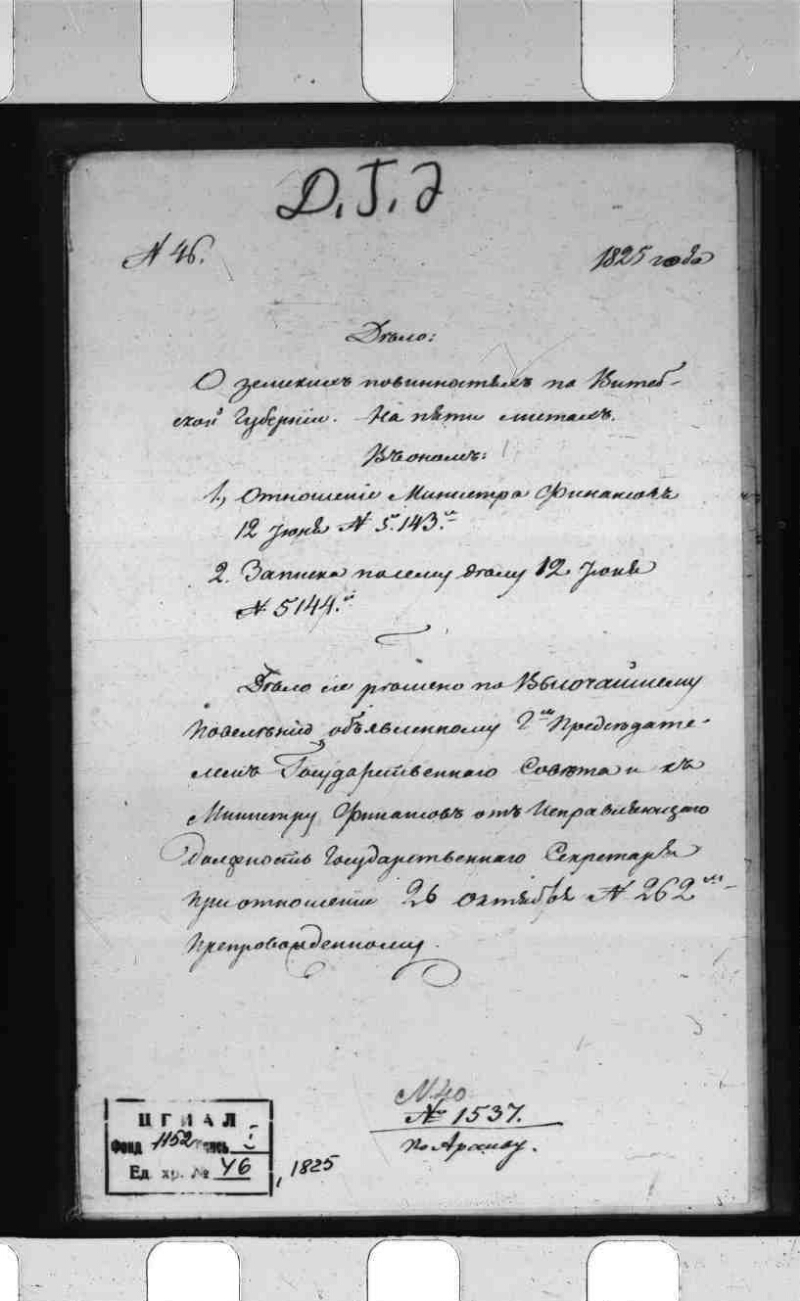 Д. Г. Э
№ 46.
1825 года
Дѣло:
О земскихъ повинностяхъ по Витеб-
ской Губерніи. На пяти листахъ.
Въ ономъ:
1, Отношеніе Министра Финансовъ
12 Іюня № 5.143.
2. Записка по сему дѣлу 12 Іюня
№ 5144.
Дѣло сіе рѣшено по Высочайшему
повелѣнію, объявленному Гмъ Предсѣдате-
лемъ Государственнаго Совѣта и къ
Министру Финансовъ отъ Исправляющаго
должность Государственнаго Секретаря
при отношеніи 26 октября № 262мъ
препровожденному.
№ 40
№ 1537.
по Архиву.
ЦГИАЛ
Фонд 1152 опись I
Ед. хр. № 46, 1825